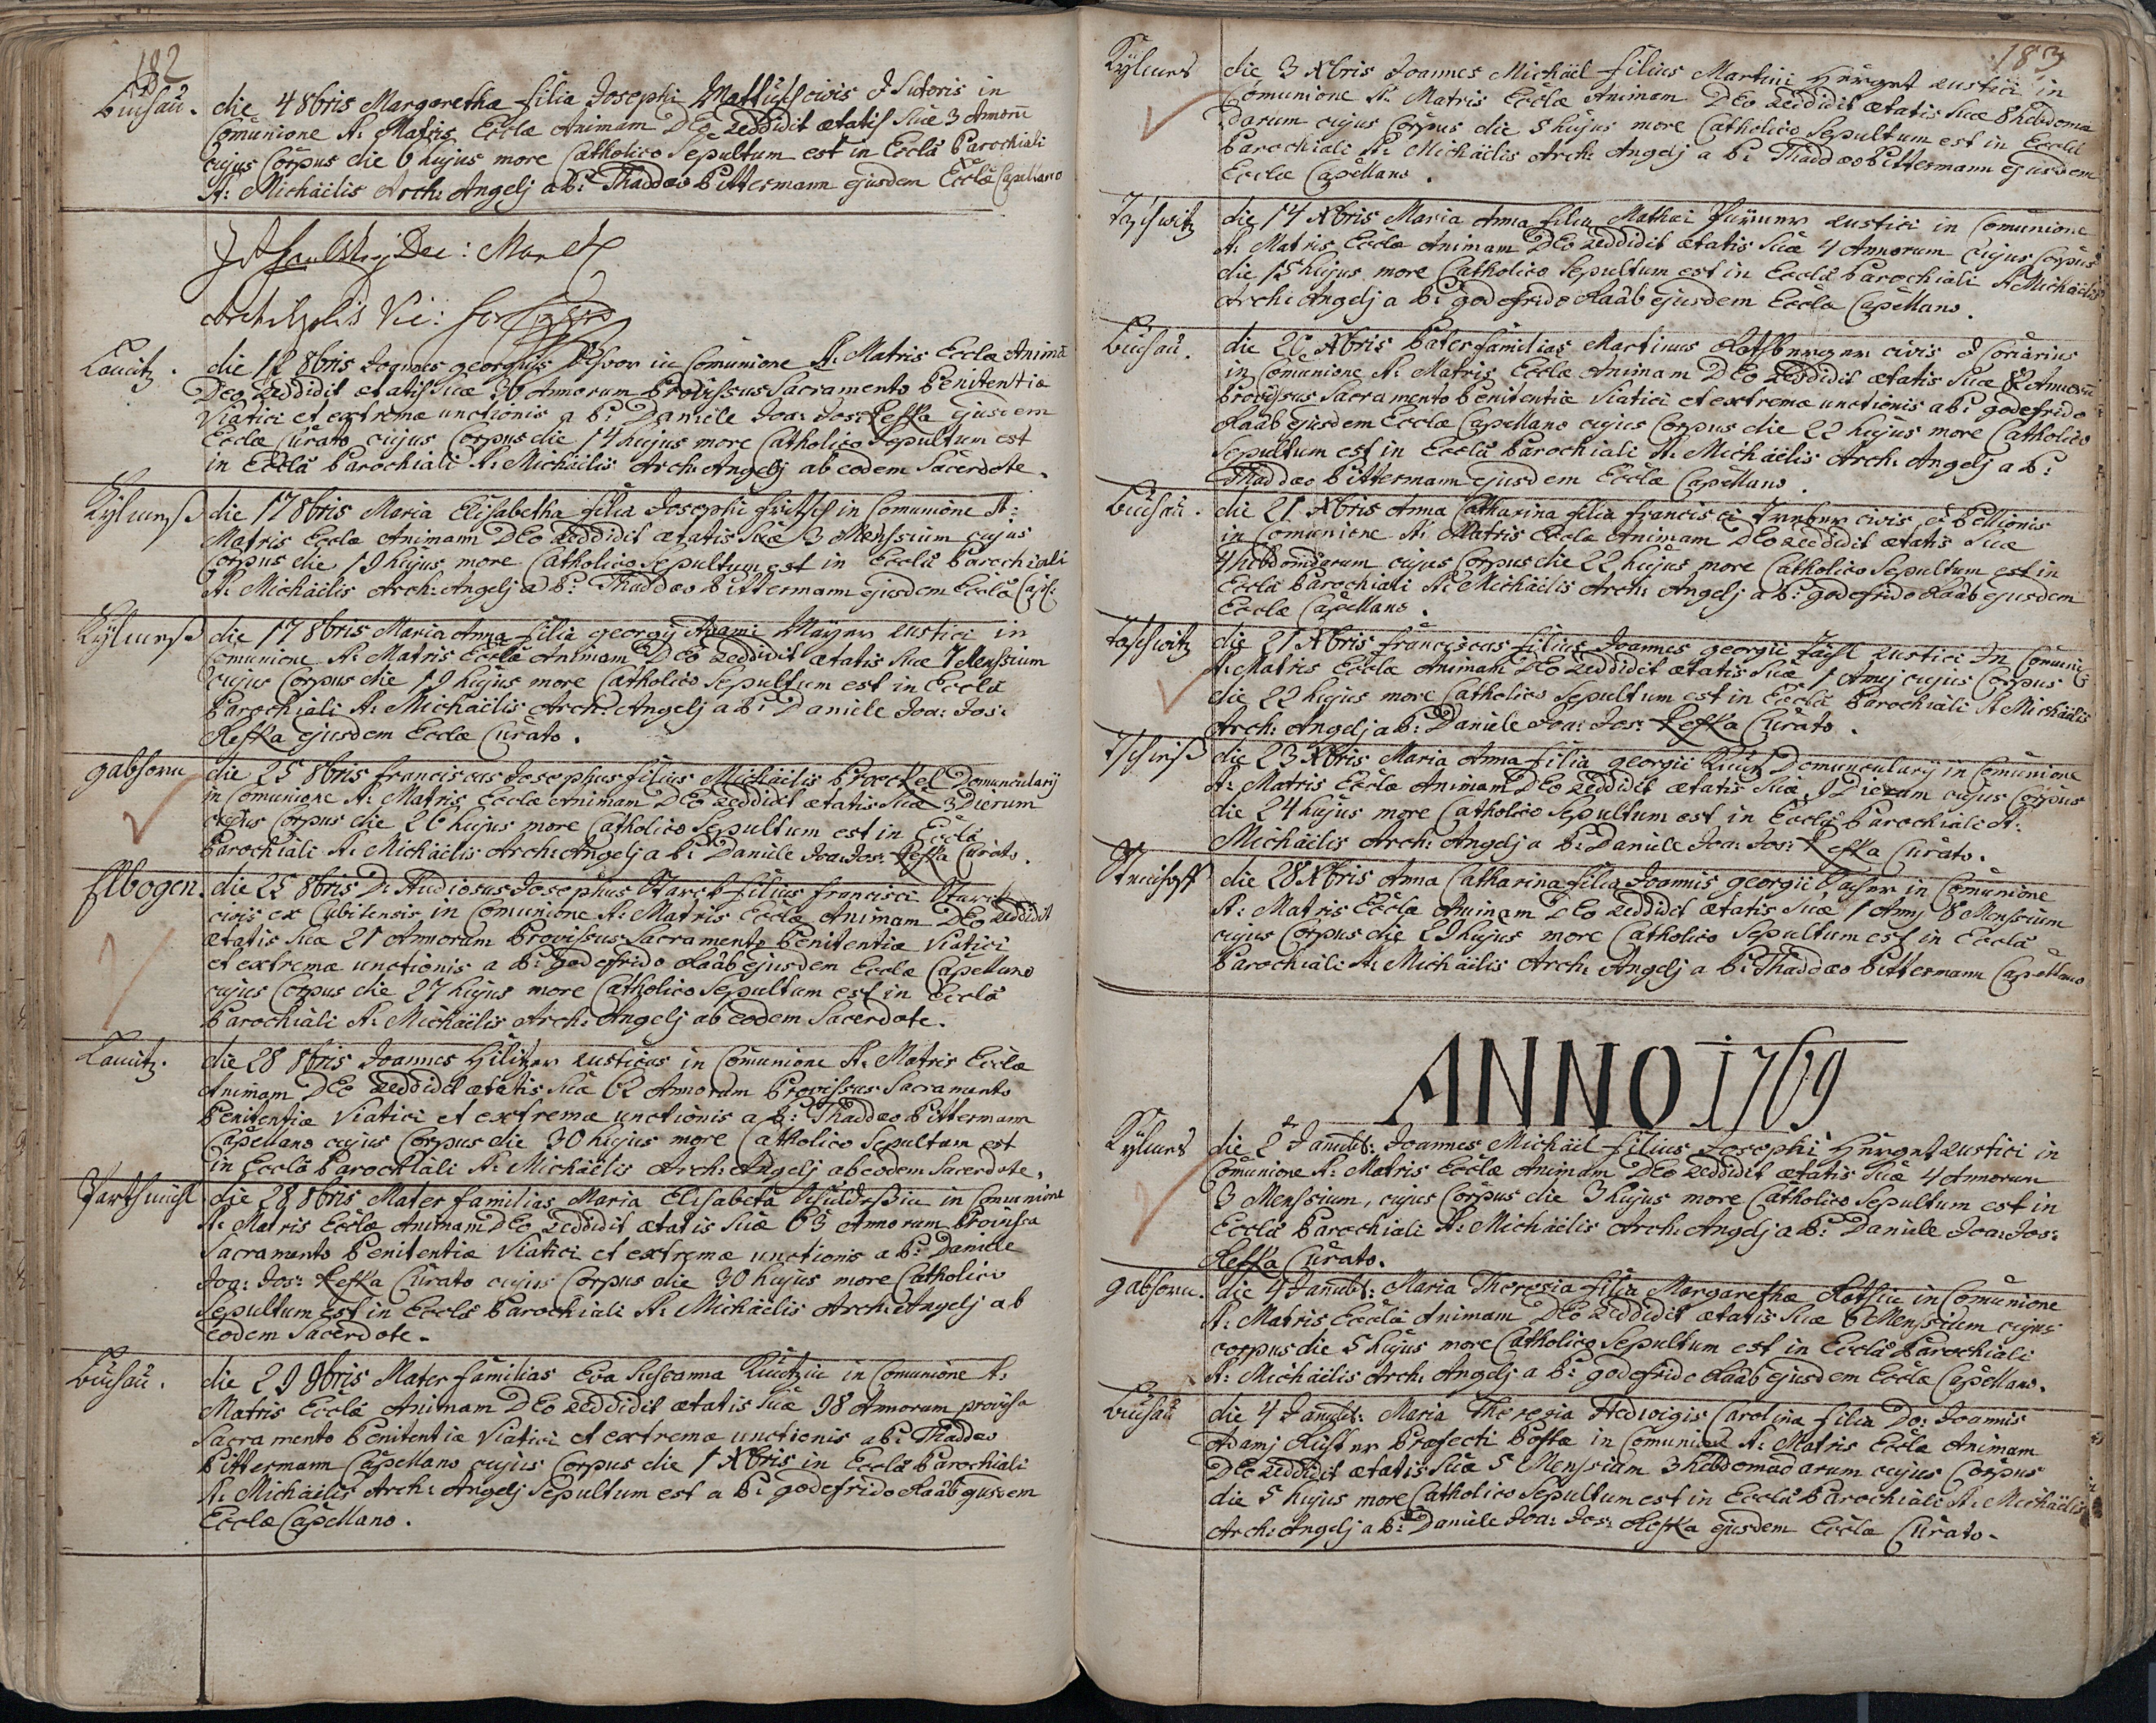 182
Buchau. die 4 8bris Margaretha filia Josephi Mattusch civis & Sutoris in
Comunione S: Matris Ecclæ Animam DEo reddidit ætatis Suæ 3 Annorũ
cujus Corpus die 6 hujus more Catholico Sepultum est in Ecclâ Parochiali
S: Michäelis Arch: Angelj a P: Thaddæo Pittermann ejusdem Ecclæ Capellano
Dec:
Vic:
die 12 8bris Joannes georgius in Comunione S: Matris Ecclæ Animã
DEo reddidit ætatis Suæ 30 Annorum Provissus Sacramento Penitentiæ
Viatici et extremæ unctionis a P: Daniele Joa: Jos: Refka ejusdem
Ecclæ Curato cujus Corpus die 14 hujus more Catholico Sepultum est
in Ecclâ Parochiali S: Michäelis Arch: Angelj ab eodem Sacerdote.
die 17 8bris Maria Elisabetha filia Josephi fritsch in Comunione S:
Matris Ecclæ Animam DEo reddidit ætatis Suæ 3 Menssium cujus
Corpus die 19 hujus more Catholico Sepultum est in Ecclâ Parochiali
S: Michäelis Arch: Angelj a P: Thaddæo Pittermann ejusdem Ecclæ Cap:
die 17 8bris Maria Anna filia georgij Adami Mayer rustici in
Comunione S: Matris Ecclæ Animam DEo reddidit ætatis Suæ 7 Menssium
cujus Corpus die 19 hujus more Catholico Sepultum est in Ecclâ
Parochiali S: Michäelis Arch: Angelj a P: Daniele Joa: Jos:
Refka ejusdem Ecclæ Curato.
gabhorn die 25 8bris franciscus Josephus filius Michäelis Prockel Domuncularij
in Comunione S: Matris Ecclæ Animam DEo reddidit ætatis Suæ 3 Dierum
cujus Corpus die 26 hujus more Catholico Sepultum est in Ecclâ
Parochiali S: Michäelis Arch: Angelj a P: Daniele Joa: Jos: Refka Curato.
Elbogen. die 25 8bris D: Studiosus Josephus Starck filius francisci Starck
civis ex Cubitensis in Comunione S: Matris Ecclæ Animam DEo reddidit
ætatis Suæ 21 Annorum Provissus Sacramento Penitentiæ Viatici
et extremæ unctionis a P: godefrido Raab ejusdem Ecclæ Capellano
cujus Corpus die 27 hujus more Catholico Sepultum est in Ecclâ
Parochiali S: Michäelis Arch: Angelj ab eodem Sacerdote.
die 28 8bris Joannes Hilitzer rusticus in Comunione S: Matris Ecclæ
Animam DEo reddidit ætatis Suæ 62 Annorum Provissus Sacramento
Penitentiæ Viatici et extremæ unctionis a P: Thaddæo Pittermann
Capellano cujus Corpus die 30 hujus more Catholico Sepultum est
in Ecclâ Parochiali S: Michäelis Arch: Angelj ab eodem Sacerdote.
die 28 8bris Mater familias Maria Elisabeta in Comunione
S: Matris Ecclæ Animam DEo reddidit ætatis Suæ 63 Annorum Provissa
Sacramento Penitentiæ Viatici et extremæ unctionis a P: Daniele
Joa: Jos: Refka Curato cujus Corpus die 30 hujus more Catholico
Sepultum est in Ecclâ Parochiali S: Michäelis Arch: Angelj ab
eodem Sacerdote.
Buchau. die 29 9bris Mater familias Eva Susanna in Comunione S:
Matris Ecclæ Animam DEo reddidit ætatis Suæ 98 Annorum provissa
Sacramento Penitentiæ Viatici et extremæ unctionis a P: Thaddæo
Pittermann Capellano cujus Corpus die 1 Xbris in Ecclâ Parochiali
S: Michäelis Arch: Angelj Sepultum est a P: godefrido Raab ejusdem
Ecclæ Capellano.
183
die 3 Xbris Joannes Michäel filius Martini Herget rustici in
Comunione S: Matris Ecclæ Animam DEo reddidit ætatis Suæ 8 hebdoma
darum cujus Corpus die 5 hujus more Catholico Sepultum est in Ecclâ
Parochiali S: Michäelis Arch: Angelj a P: Thaddæo Pittermann ejusdem
Ecclæ Capellano.
die 14 Xbris Maria Anna filia Mathæi rustici in Comunione
S: Matris Ecclæ Animam DEo reddidit ætatis Suæ 4 Annorum cujus Corpus
die 15 hujus more Catholico Sepultum est in Ecclâ Parochiali S: Michäelis
Arch: Angelj a P: godefrido Raab ejusdem Ecclæ Capellano.
Buchau. die 20 Xbris Pater familias Martinus civis & Coriarius
in Comunione S: Matris Ecclæ Animam DEo reddidit ætatis Suæ Annorũ
Provissus Sacramento Penitentiæ Viatici et extremæ unctionis a P: godefrido
Raab ejusdem Ecclæ Capellano cujus Corpus die 22 hujus more Catholico
Sepultum est in Ecclâ Parochiali S: Michäelis Arch: Angelj a P:
Thaddæo Pittermann ejusdem Ecclæ Capellano.
Buchau. die 21 Xbris Anna Catharina filia francisci civis & Pellionis
in Comunione S: Matris Ecclæ Animam DEo reddidit ætatis Suæ
4 hebdomadarum cujus Corpus die 22 hujus more Catholico Sepultum est in
Ecclâ Parochiali S: Michäelis Arch: Angelj a P: godefrido Raab ejusdem
Ecclæ Capellano.
die 21 Xbris franciscus filius Joannes georgii rustici In Comuni
S: Matris Ecclæ Animam DEo reddidit ætatis Suæ 1 Annj cujus Corpus
die 22 hujus more Catholico Sepultum est in Ecclâ Parochiali S: Michäelis
Arch: Angelj a P: Daniele Joa: Jos: Refka Curato.
die 23 Xbris Maria Anna filia georgii Domuncularij in Comunione
S: Matris Ecclæ Animam DEo reddidit ætatis Suæ 9 Dierum cujus Corpus
die 24 hujus more Catholico Sepultum est in Ecclâ Parochiali S:
Michäelis Arch: Angelj a P: Daniele Joa: Jos: Refka Curato.
die 28 Xbris Anna Catharina filia Joannis georgii in Comunione
S: Matris Ecclæ Animam DEo reddidit ætatis Suæ 1 Annj 8 Menssium
cujus Corpus die 29 hujus more Catholico Sepultum est in Ecclâ
Parochiali S: Michäelis Arch: Angelj a P: Thaddæo Pittermann Capellano
ANNO 1769
die 2 Joannes Michäel filius Josephi Herget rustici in
Comunione S: Matris Ecclæ Animam DEo reddidit ætatis Suæ 4 Annorum
3 Menssium, cujus Corpus die 3 hujus more Catholico Sepultum est in
Ecclâ Parochiali S: Michäelis Arch: Angelj a P: Daniele Joa: Jos:
Refka Curato.
gabhorn. die 4 Maria Theresia filia Margarethæ in Comunione
S: Matris Ecclæ Animam DEo reddidit ætatis Suæ 6 Menssium cujus
corpus die 5 hujus more Catholico Sepultum est in Ecclâ Parochiali
S: Michäelis Arch: Angelj a P: godefrido Raab ejusdem Ecclæ Capellano.
Buchau die 4 Maria Theresia Hedwigis Carolina filia Do: Joannis
Adamj Præfecti Postæ in Comunione S: Matris Ecclæ Animam
DEo reddidit ætatis Suæ 5 Menssium 3 hebdomadarum cujus Corpus
die 5 hujus more Catholico Sepultum est in Ecclâ Parochiali S: Michäelis
Arch: Angelj a P: Daniele Joa: Jos: Refka ejusdem Ecclæ Curato.